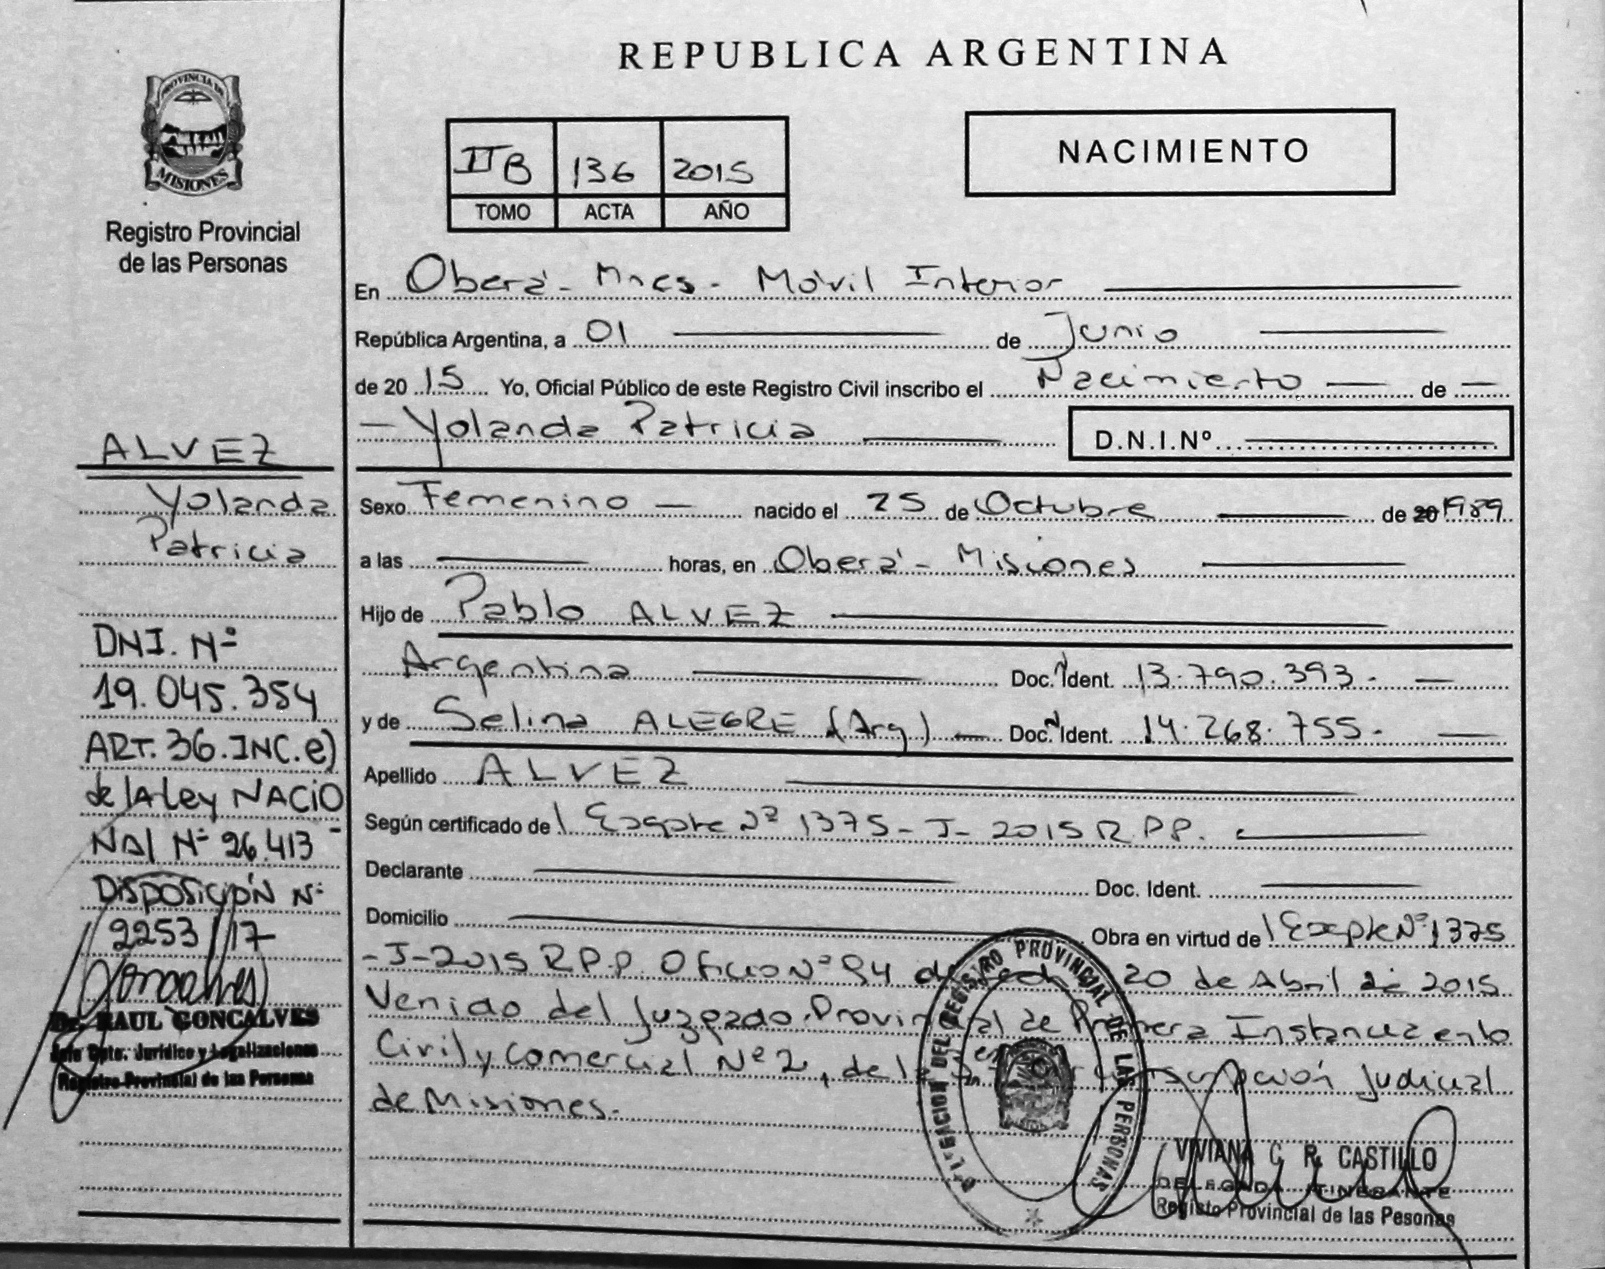 REPUBLICA ARGENTINA
PROVINCIA DE
MISIONES
Registro Provincial
de las Personas
IIB 136 2015
TOMO ACTA AÑO
NACIMIENTO
En Oberá - Mnes - Móvil Interior
República Argentina, a 01 de Junio
de 2015 Yo, Oficial Público de este Registro Civil inscribo el Nacimiento de
Yolanda Patricia D.N.I.Nº
Sexo Femenino nacido el 25 de Octubre de 20 1989
a las horas, en Oberá - Misiones
Hijo de Pablo ALVEZ
Argentina Doc. Ident. 13.790.393.
y de Selina ALEGRE (Arg) Doc. Ident. 14.268.755.
Apellido ALVEZ
Según certificado de Expte Nº 1375-J-2015 R.P.P.
Declarante Doc. Ident.
Domicilio Obra en virtud de Expte Nº 1375
-J-2015 R.P.P. Oficio Nº 94 de 20 de Abril de 2015
Venido del Juzgado Provincial de Primera Instancia en lo
Civil y Comercial Nº 2, del Judicial
de Misiones.
ALVEZ
Yolanda
Patricia
DNI. Nº
19.045.354
ART. 36. INC. e)
de la Ley NACIO
NAl Nº 26.413
DISPOSICIÓN Nº
2253/17
Dr. RAUL GONCALVES
Jefe Dpto. Jurídico y Legalizaciones
Registro Provincial de las Personas
DELEGACION DEL REGISTRO PROVINCIAL DE LAS PERSONAS
VIVIANA C. R. CASTILLO
DELEGADA ITINERANTE
Registo Provincial de las Pesonas